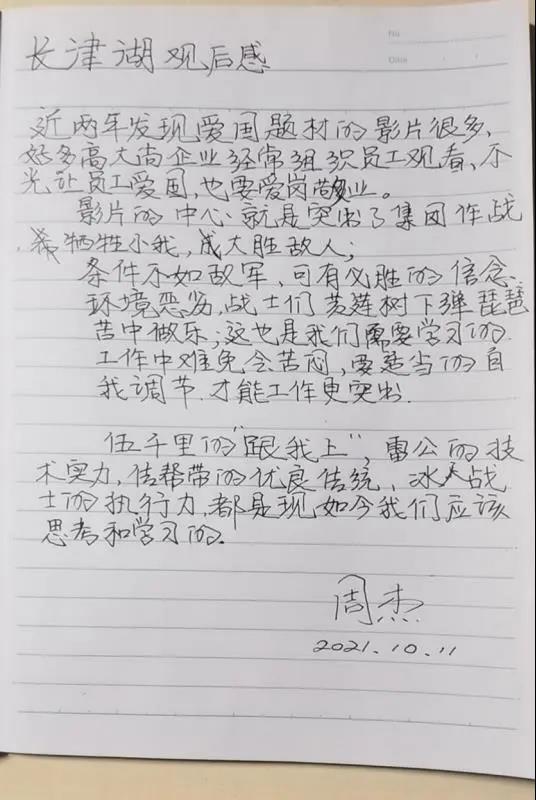 No
Date
长津湖观后感
近两年发现爱国题材的影片很多、
好多高大尚企业经常组织员工观看、不
光让员工爱国,也要爱岗敬业。
影片的中心就是突出了集团作战
牺牲小我,成大胜敌人;
条件不如敌军,可有必胜的信念、
环境恶劣,战士们苦莲树下弹琵琶
苦中做乐;这也是我们需要学习的.
工作中难免会苦闷,要适当的自
我调节.才能工作更突出.
伍千里的"跟我上",雷公的技
术实力,传帮带的优良传统、冰人战
士的执行力,都是现如今我们应该
思考和学习的.
周杰
2021.10.11